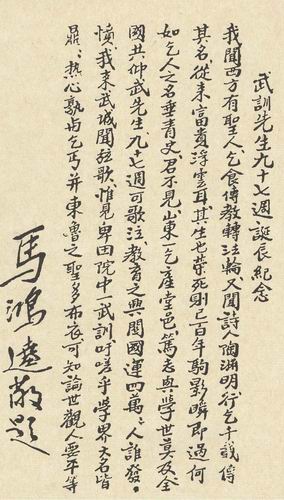 武訓先生九十七週誕辰紀念
我聞西方有聖人乞食傳教轉法輪又聞詩人陶淵明行乞千載傳
其名從來富貴浮雲耳其生也榮死則已百年駒影瞬即過何
如乞人之名垂青史君不見山東一乞產堂邑篤志興學世莫及全
國共仰武先生九十七週可歌泣教育之興關國運四萬〻人誰發〻
憤我來武城聞弦歌惟見卑田院中一武訓吁嗟乎學界大名皆
鼎〻熱心孰與乞丐并東魯之聖多布衣可知論世觀人要平等
馬鴻逵敬題